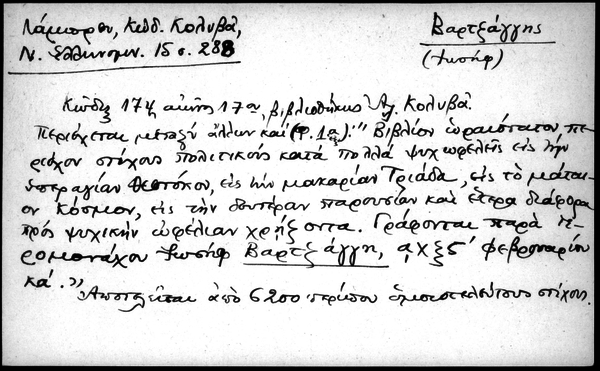 Λάμπρου, Κώδ. Κολυβᾶ,
Ν. Ἑλληνομν. 15 σ. 288
Βαρτζάγγης
(Ἰωσήφ)
Κῶδιξ 174 αἰῶνος 17ου, βιβλιοθήκης Ἀλ. Κολυβᾶ.
Περιέχεται μεταξὺ ἄλλων καὶ (φ. 1α): "Βιβλίον ὡραιότατον, πε-
ριέχον στίχους πολιτικοὺς κατὰ πολλὰ ψυχωφελεῖς εἰς τὴν
ὑπεραγίαν Θεοτόκον, εἰς τὴν μακαρίαν Τριάδα, εἰς τὸ μάται-
ον κόσμον, εἰς τὴν δευτέραν παρουσίαν καὶ ἕτερα διάφορα
πρὸς ψυχικὴν ὠφέλειαν χρήζοντα. Γράφονται παρὰ ἱε-
ρομονάχου Ἰωσὴφ Βαρτζάγγη, ͵αχξϛʹ φεβρουαρίου
κά."
Ἀποτελεῖται ἀπὸ 6200 περίπου ὁμοιοτελεύτους στίχους.